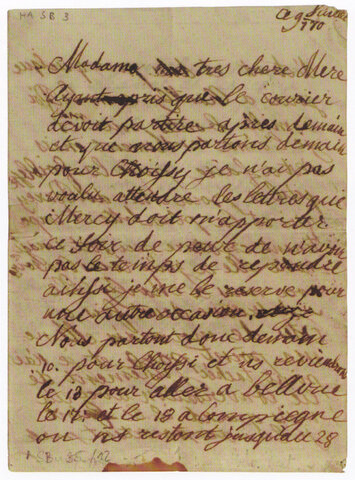 HA SB 3
ce 9 Juillet
1770
Madame tres chere Mere
Ayant apris que le courier
devoit partire apres demain
et que nous partons demain
pour Choissy je n'ai pas
voulu attendre les lettres que
Mercy doit m'apporter
ce soir de peure de n'avoir
pas le temps de repondre
ainsi je me le reserve pour
une autre occasion
Nous partont donc demain
10. pour Choysi et ns reviendrons
le 13 pour aller a bellevue
le 17. et le 18 a Compiegne
ou ns restont jusqu'du 28